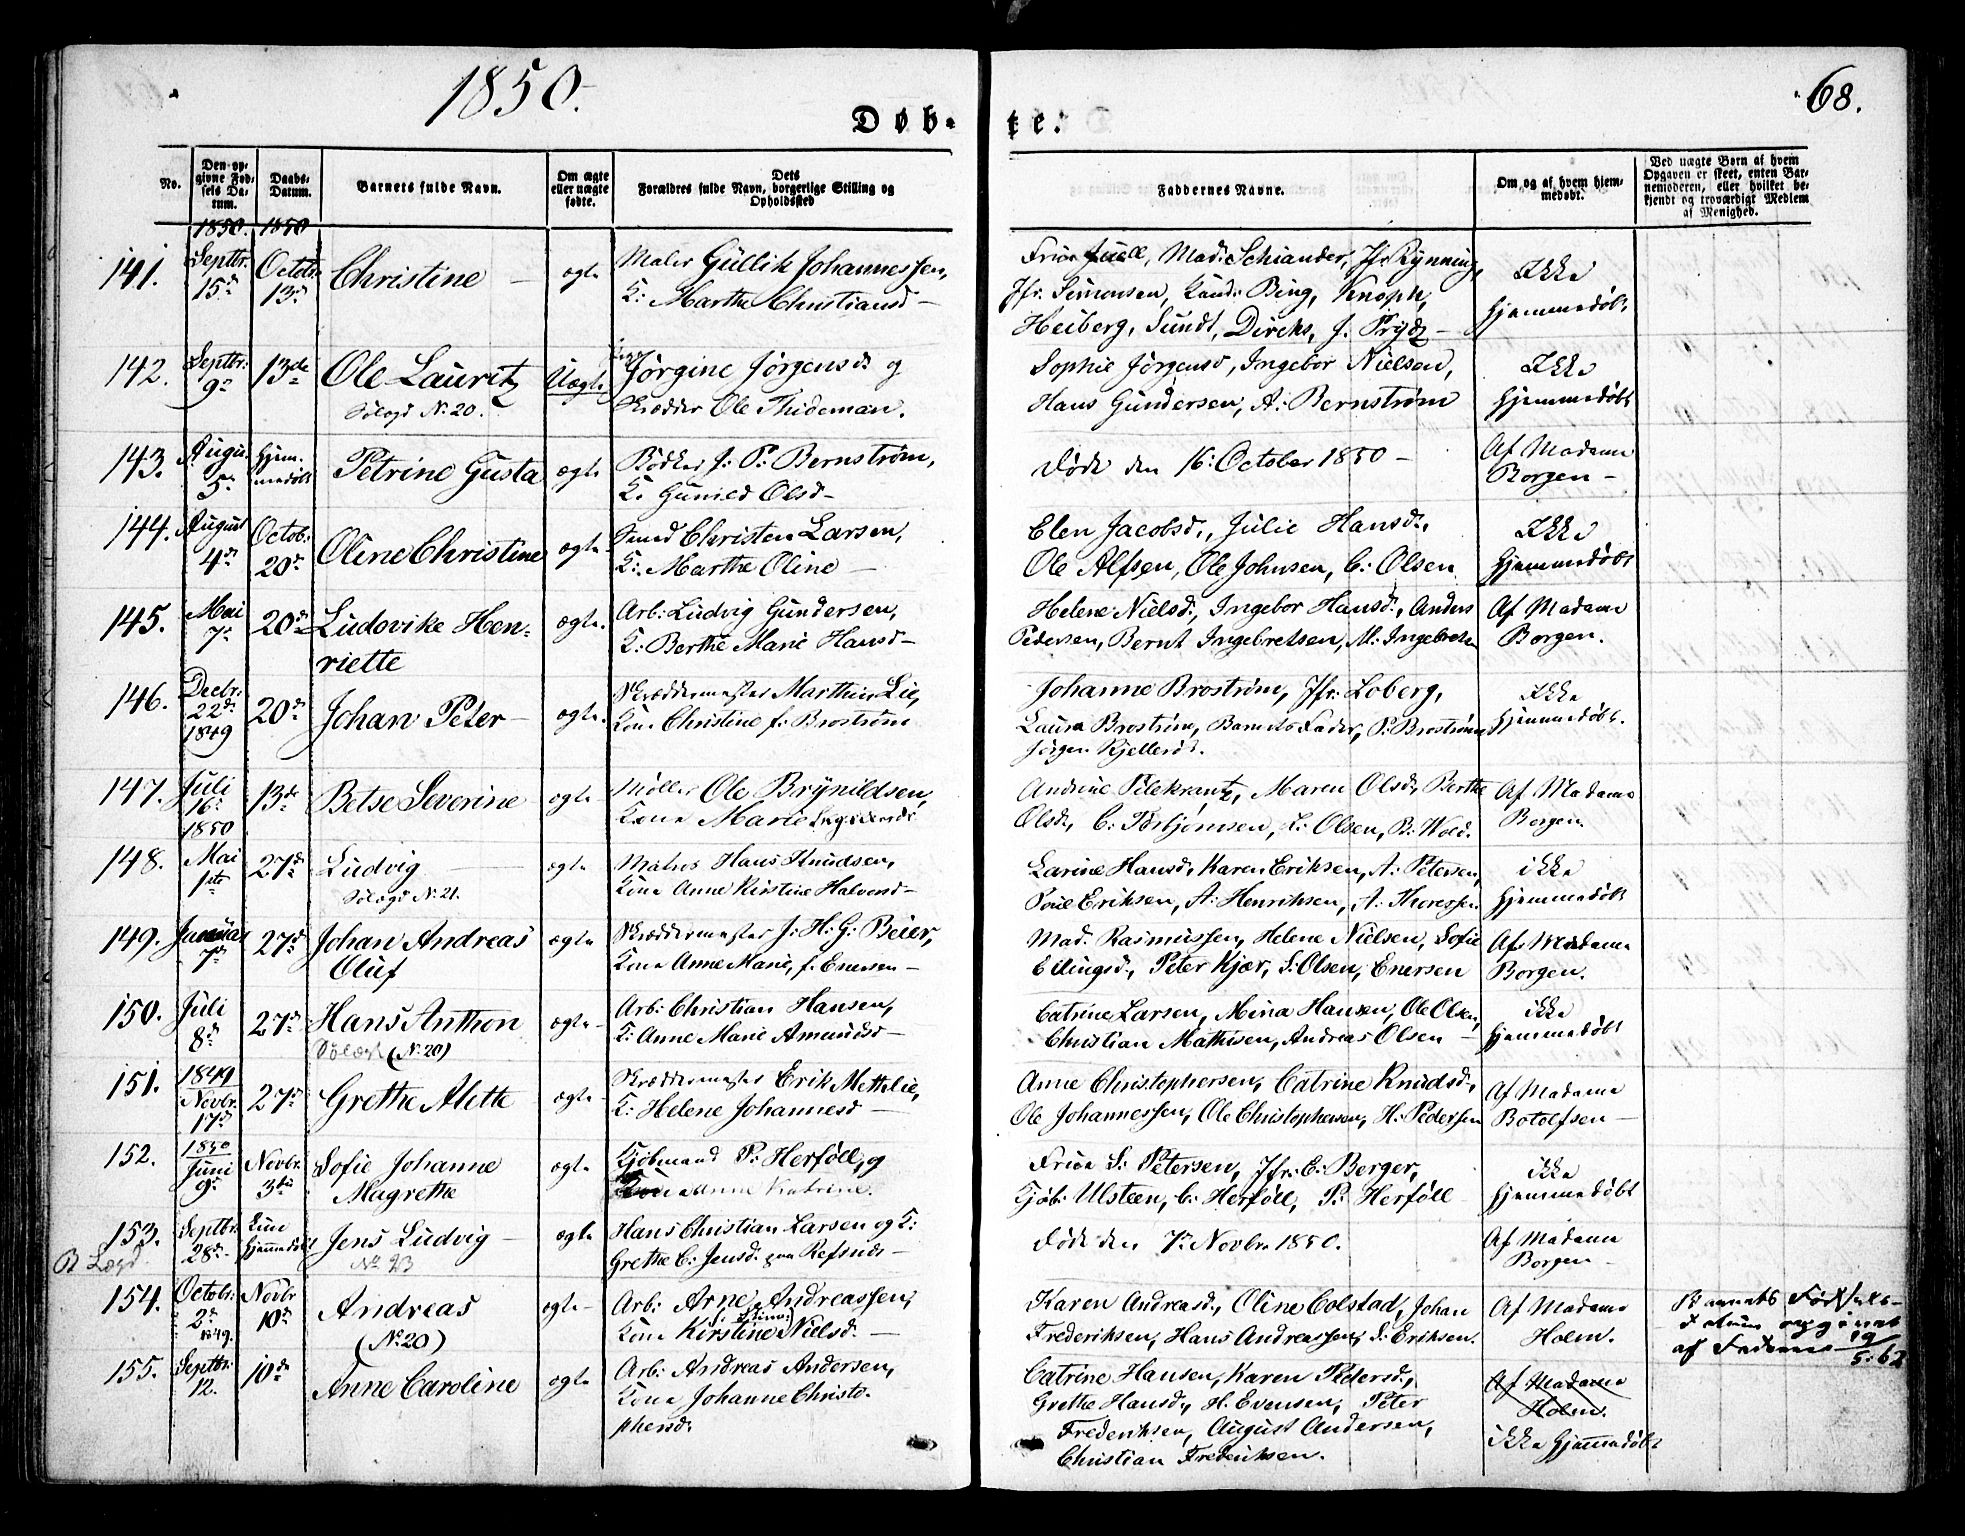 1850.
68.
Døb-te:
No.
Den op-
givne Fød-
sels Da-
tum.
Daabs-
Datum.
Barnets fulde Navn.
Om ægte
eller uægte
fødte.
Dets
Forældres fulde Navn, borgerlige Stilling og
Opholdssted
Faddernes Navne.
Om og af hvem hjem-
medøbt.
Ved uægte Børn af hvem
Opgaven er skeet, enten Bar-
nemoderen, eller hvilket be-
kjendt og troværdigt Medlem
af Menighed.
1850. 1850
141. Septbr. 15d Octobr. 13d Christine – ægte
Maler Gullik Johannessen,
K: Marthe Christiansd –
Frue Juell, Mad: Schiander, Jfr Rynning,
Jfr. Simonsen, Kand: Bing, Knoph,
Heiberg, Sundt, Dircks, J. Prydz –
Ikke
hjemmedøbt
142. Septbr. 9d 13de Ole Lauritz Uægte
Sølægd No 20.
Jørgine Jørgensd: og
Skrædder Ole Thideman.
Sophie Jørgensd, Ingebor Nielsen,
Hans Gundersen, A: Bernstrøm
Ikke
hjemmedøbt
143. Augu. 5d hjem-
medøbt Petrine Gusta ægte
Bødker J: P: Bernstrøm,
K. Gunild Olsd –
døde den 16: October 1850 –
Af Madame
Borgen –
144. August 4d Octob: 20d Oline Christine ægte
Smed Christen Larsen,
K: Marthe Oline –
Elen Jacobsd., Julie Hansd.,
Ole Alfsen, Ole Johnsen, C: Olsen
Ikke
hjemmedøbt
145. Mai 7d 20d Ludovike Hen-
riette ægte.
Arb: Ludvig Gundersen,
K: Berthe Marie Hansd –
Helene Nielsd., Ingebor Hansd., Anders
Pedersen, Bernt Ingebretsen, M: Ingebretsn
Af Madame
Borgen.
146. Decbr: 22d 1849 20d Johan Peter – ægte.
Skræddermester Marthin Lie,
Kone Christine f: Brostrøm
Johanne Brostrøm, Jfr: Loberg,
Laura Brostrøm, Barnets Fader, P: Brostrøm
Jørgen Kjellerød.
Ikke
hjemmedøbt.
147. Juli 16d 1850 13de Betse Severine – ægte
Møller Ole Brynildsen,
Kone Marie
Andrine Pilekrantz, Maren Olsd., Berthe
Olsd., C: Torbjørnsen, L: Olsen, B: Wold.
Af Madame
Borgen.
148. Mai 1ste 27d Ludvig – ægte
Sølægd No 21.
Matros Hans Knudsen,
Kone Anne Kirstine Halvorsd –
Larine Hansd., Karen Eriksen, A: Petersen,
Poul Eriksen, A: Henriksen, A: Thoressen
ikke
hjemmedøbt
149. Januar 7d 27d Johan Andreas
Oluf ægte
Skræddermester J: H: G: Beier,
Kone Anne Marie, f. Enersen –
Mad. Rasmussen, Helene Nielsen, Sofie
Ellingsd., Peter Kjær, S: Olsen, Enersen
Af Madame
Borgen.
150. Juli 8d 27d Hans Anthon ægte –
Sølægd (No 20)
Arb: Christian Hansen,
K: Anne Marie Amundsd –
Catrine Larsen, Mina Hansen, Ole Olsen,
Christian Mathisen, Andreas Olsen –
ikke
hjemmedøbt
151. 1849 Novbr. 17d 27d Grethe Alette ægte –
Skræddermester Erik Mettelie,
K: Helene Johannesd –
Anne Christophersen, Catrine Knudsd.,
Ole Johannessen, Ole Christophersen, H: Pedersen
Af Madame
Botolfsen –
152. 1850 Juni 9d Novbr. 3die Sofie Johanne
Magrethe ægte
Kjøbmand P: Herføll, og
Kone Anne Katrine.
Frue S: Petersen, Jfr: E: Berger,
Kjøb: Ulsteen, C: Herføll, P: Herføll
ikke
hjemmedøbt
153. Septbr. 28d kun
hjemmedøbt Jens Ludvig – ægte
R Lægd. No 23
Hans Christian Larsen og K:
Grethe C: Jensd: paa Refsnes –
døde den 7d Novbr. 1850.
Af Madame
Borgen –
154. Octobr. 2d 1849. Novbr 10d Andreas ægte –
(No 20)
Arb: Arne Andreassen,
Kone Kirstine Nielsd. –
Karen Andreasd., Oline Colstad, Johan
Frederiksen, Hans Andreassen, S: Eriksen.
Af Madame
Holm.
Barnets Fødsels-
datum opgivet
af Faderen 19/5. 62
155. Septbr. 12. 10de Anne Caroline ægte
Arb: Andreas Andersen,
Kone Johanne Christo-
phersd.
Catrine Hansen, Karen Pedersd.,
Grethe Hansd., H. Evensen, Peter
Frederiksen, August Andersen,
Christian Frederiksen.
Af Madame
Holm.
ikke hjemmedøbt